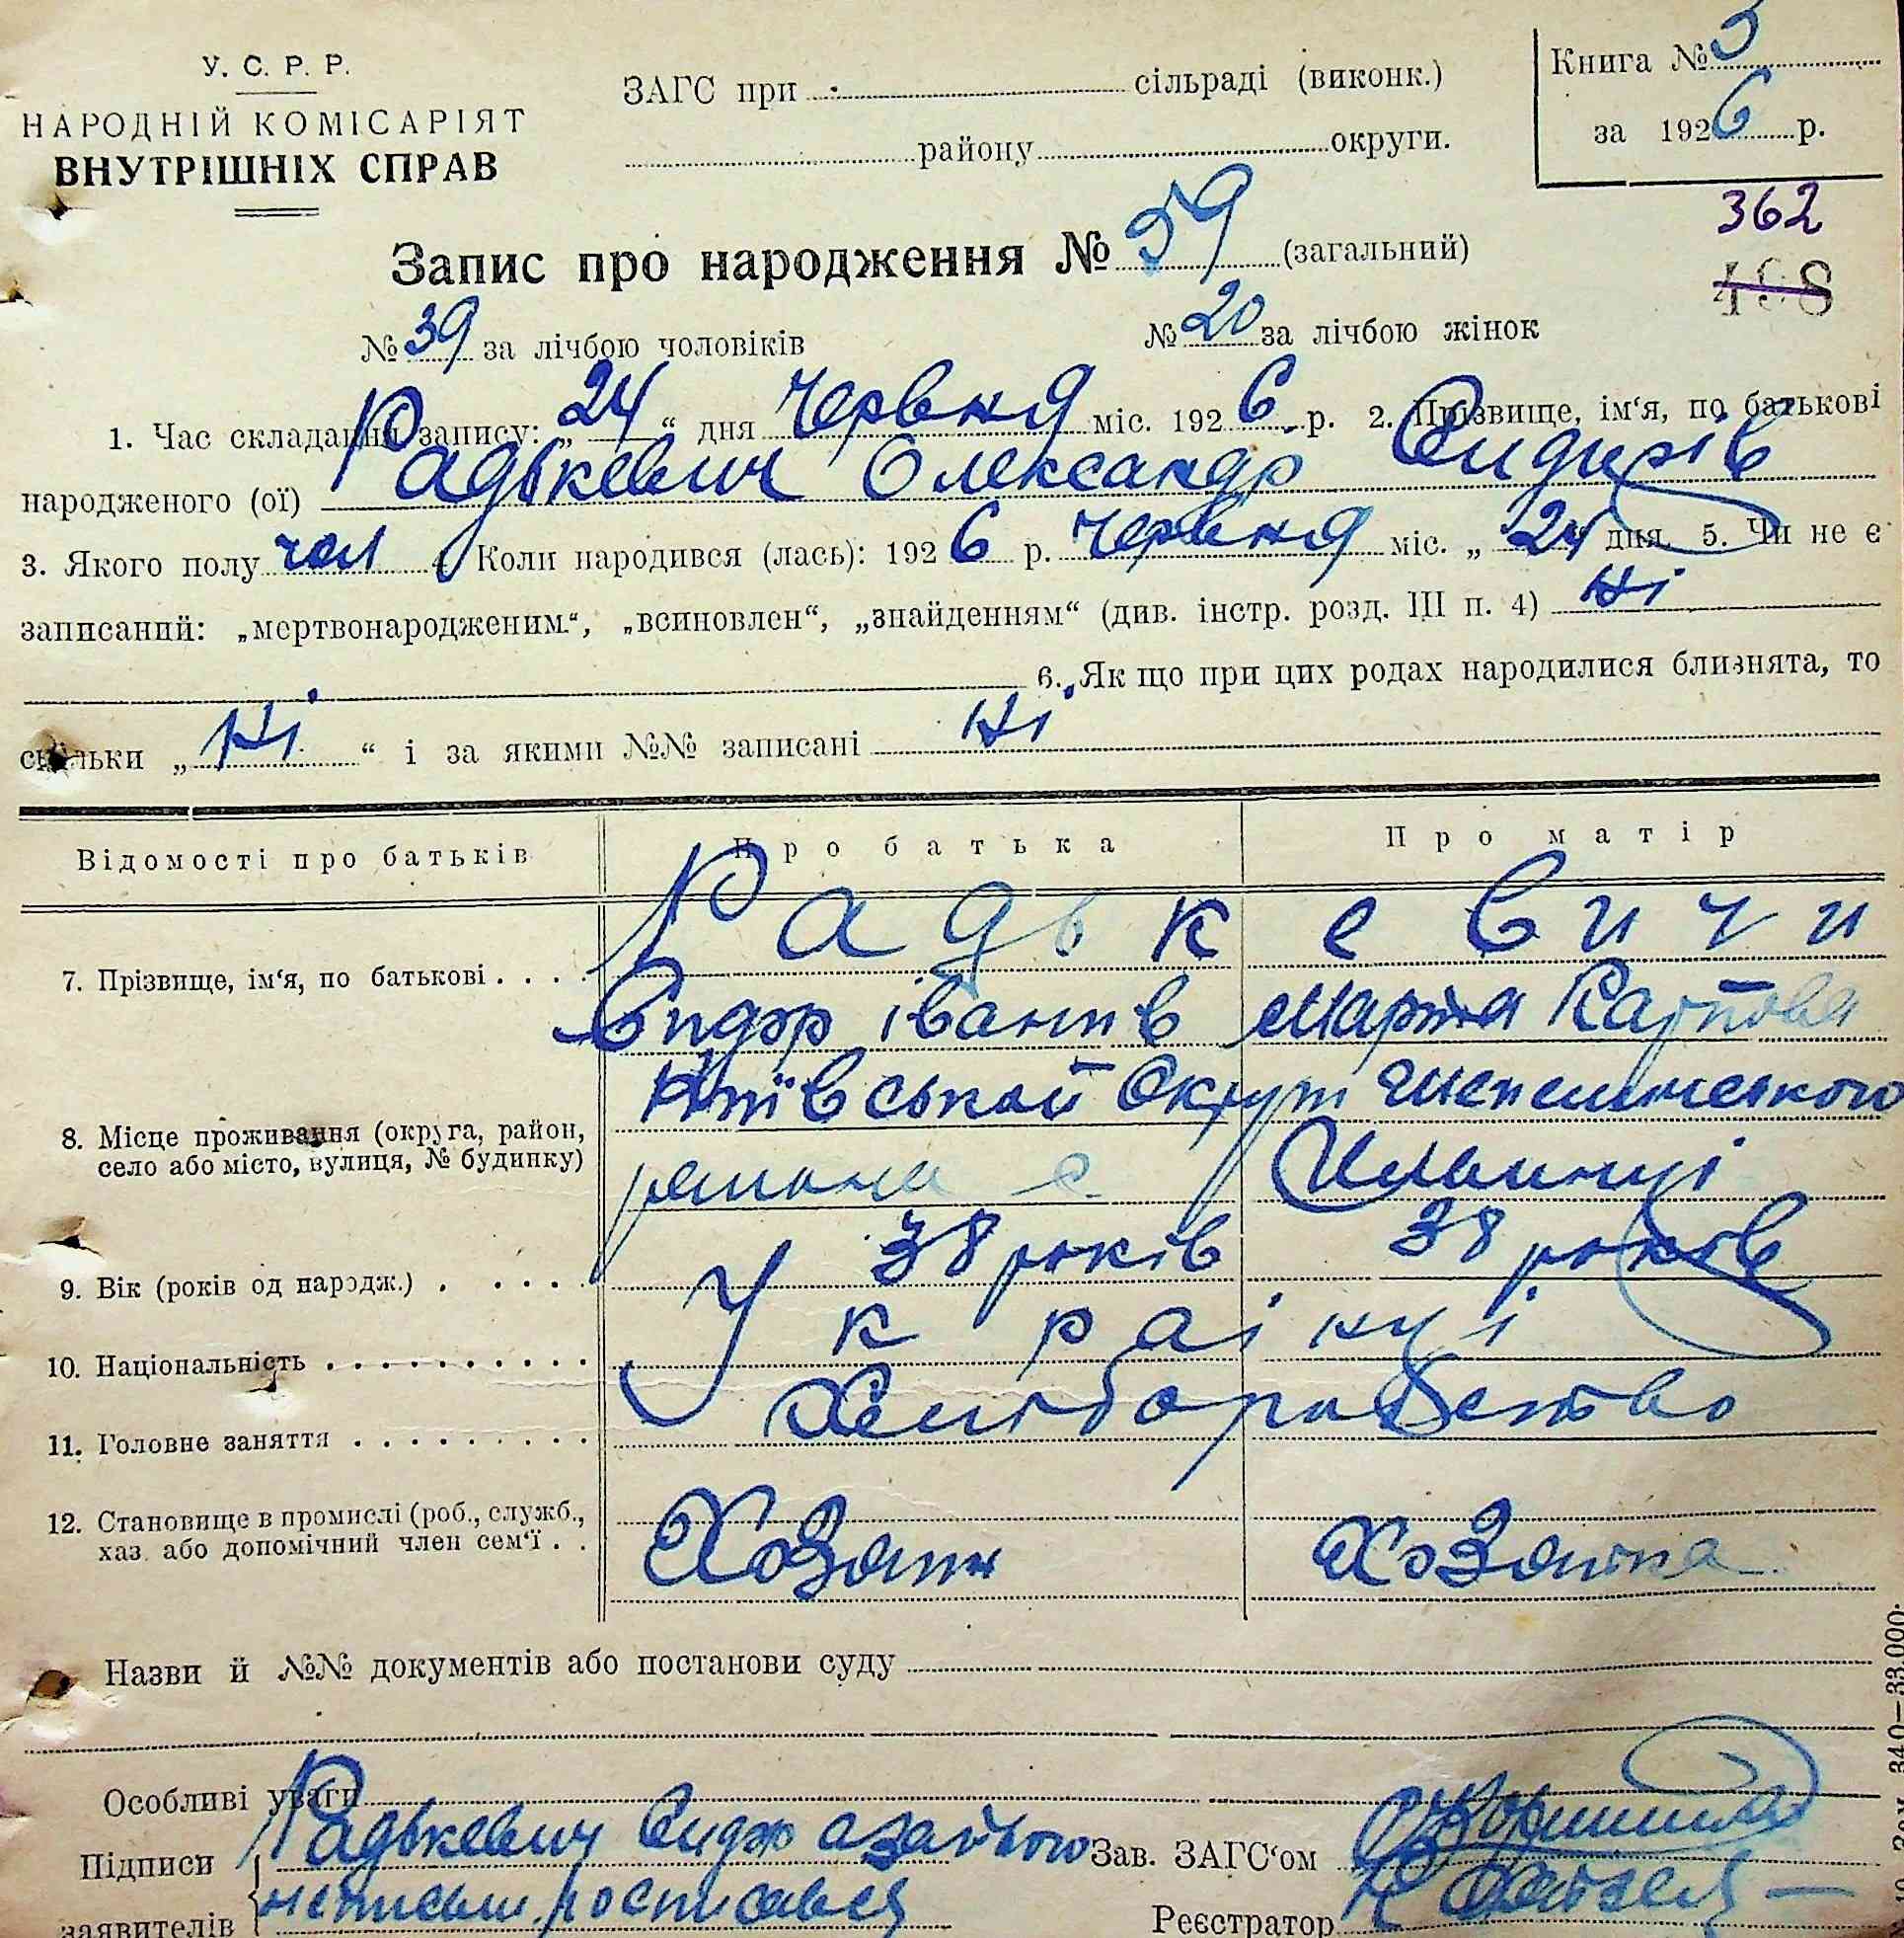 У. С. Р. Р.
НАРОДНІЙ КОМІСАРІЯТ
ВНУТРІШНІХ СПРАВ
ЗАГС при сільраді (виконк.)
району округи.
Книга №
за 1926 р.
362
Запис про народження № 59 (загальний)
№ 39 за лічбою чоловіків № 20 за лічбою жінок
1. Час складання запису: „24“ дня червня міс. 1926 р. 2. Прізвище, ім‘я, по батькові
народженого (ої) Радькевич Олександр Сидирів
3. Якого полу чол 4. Коли народився (лась): 1926 р. червня міс. „24 дня. 5. Чи не є
записаний: „мертвонародженим“, „всиновлен“, „знайденням“ (див. інстр. розд. III п. 4) Ні
6. Як що при цих родах народилися близнята, то
скільки „Ні“ і за якими №№ записані Ні
Відомості про батьків Про батька Про матір
7. Прізвище, ім‘я, по батькові . . . . Радькевичи
Сидор Іванів Марта Карпова
8. Місце проживання (округа, район,
село або місто, вулиця, № будинку)
Київськой Округи
района с.
9. Вік (років од народж.) . . . . . 38 років 38 років
10. Національність . . . . . . . . . . Українці
11. Головне заняття . . . . . . . . .
12. Становище в промислі (роб., служб.,
хаз. або допомічний член сем‘ї . .
Хозяин Хозяйка
Назви й №№ документів або постанови суду
Особливі уваги
Підписи
заявителів
Радькевич Сидор а за його
неписьм. росписався
Зав. ЗАГС‘ом
Реєстратор